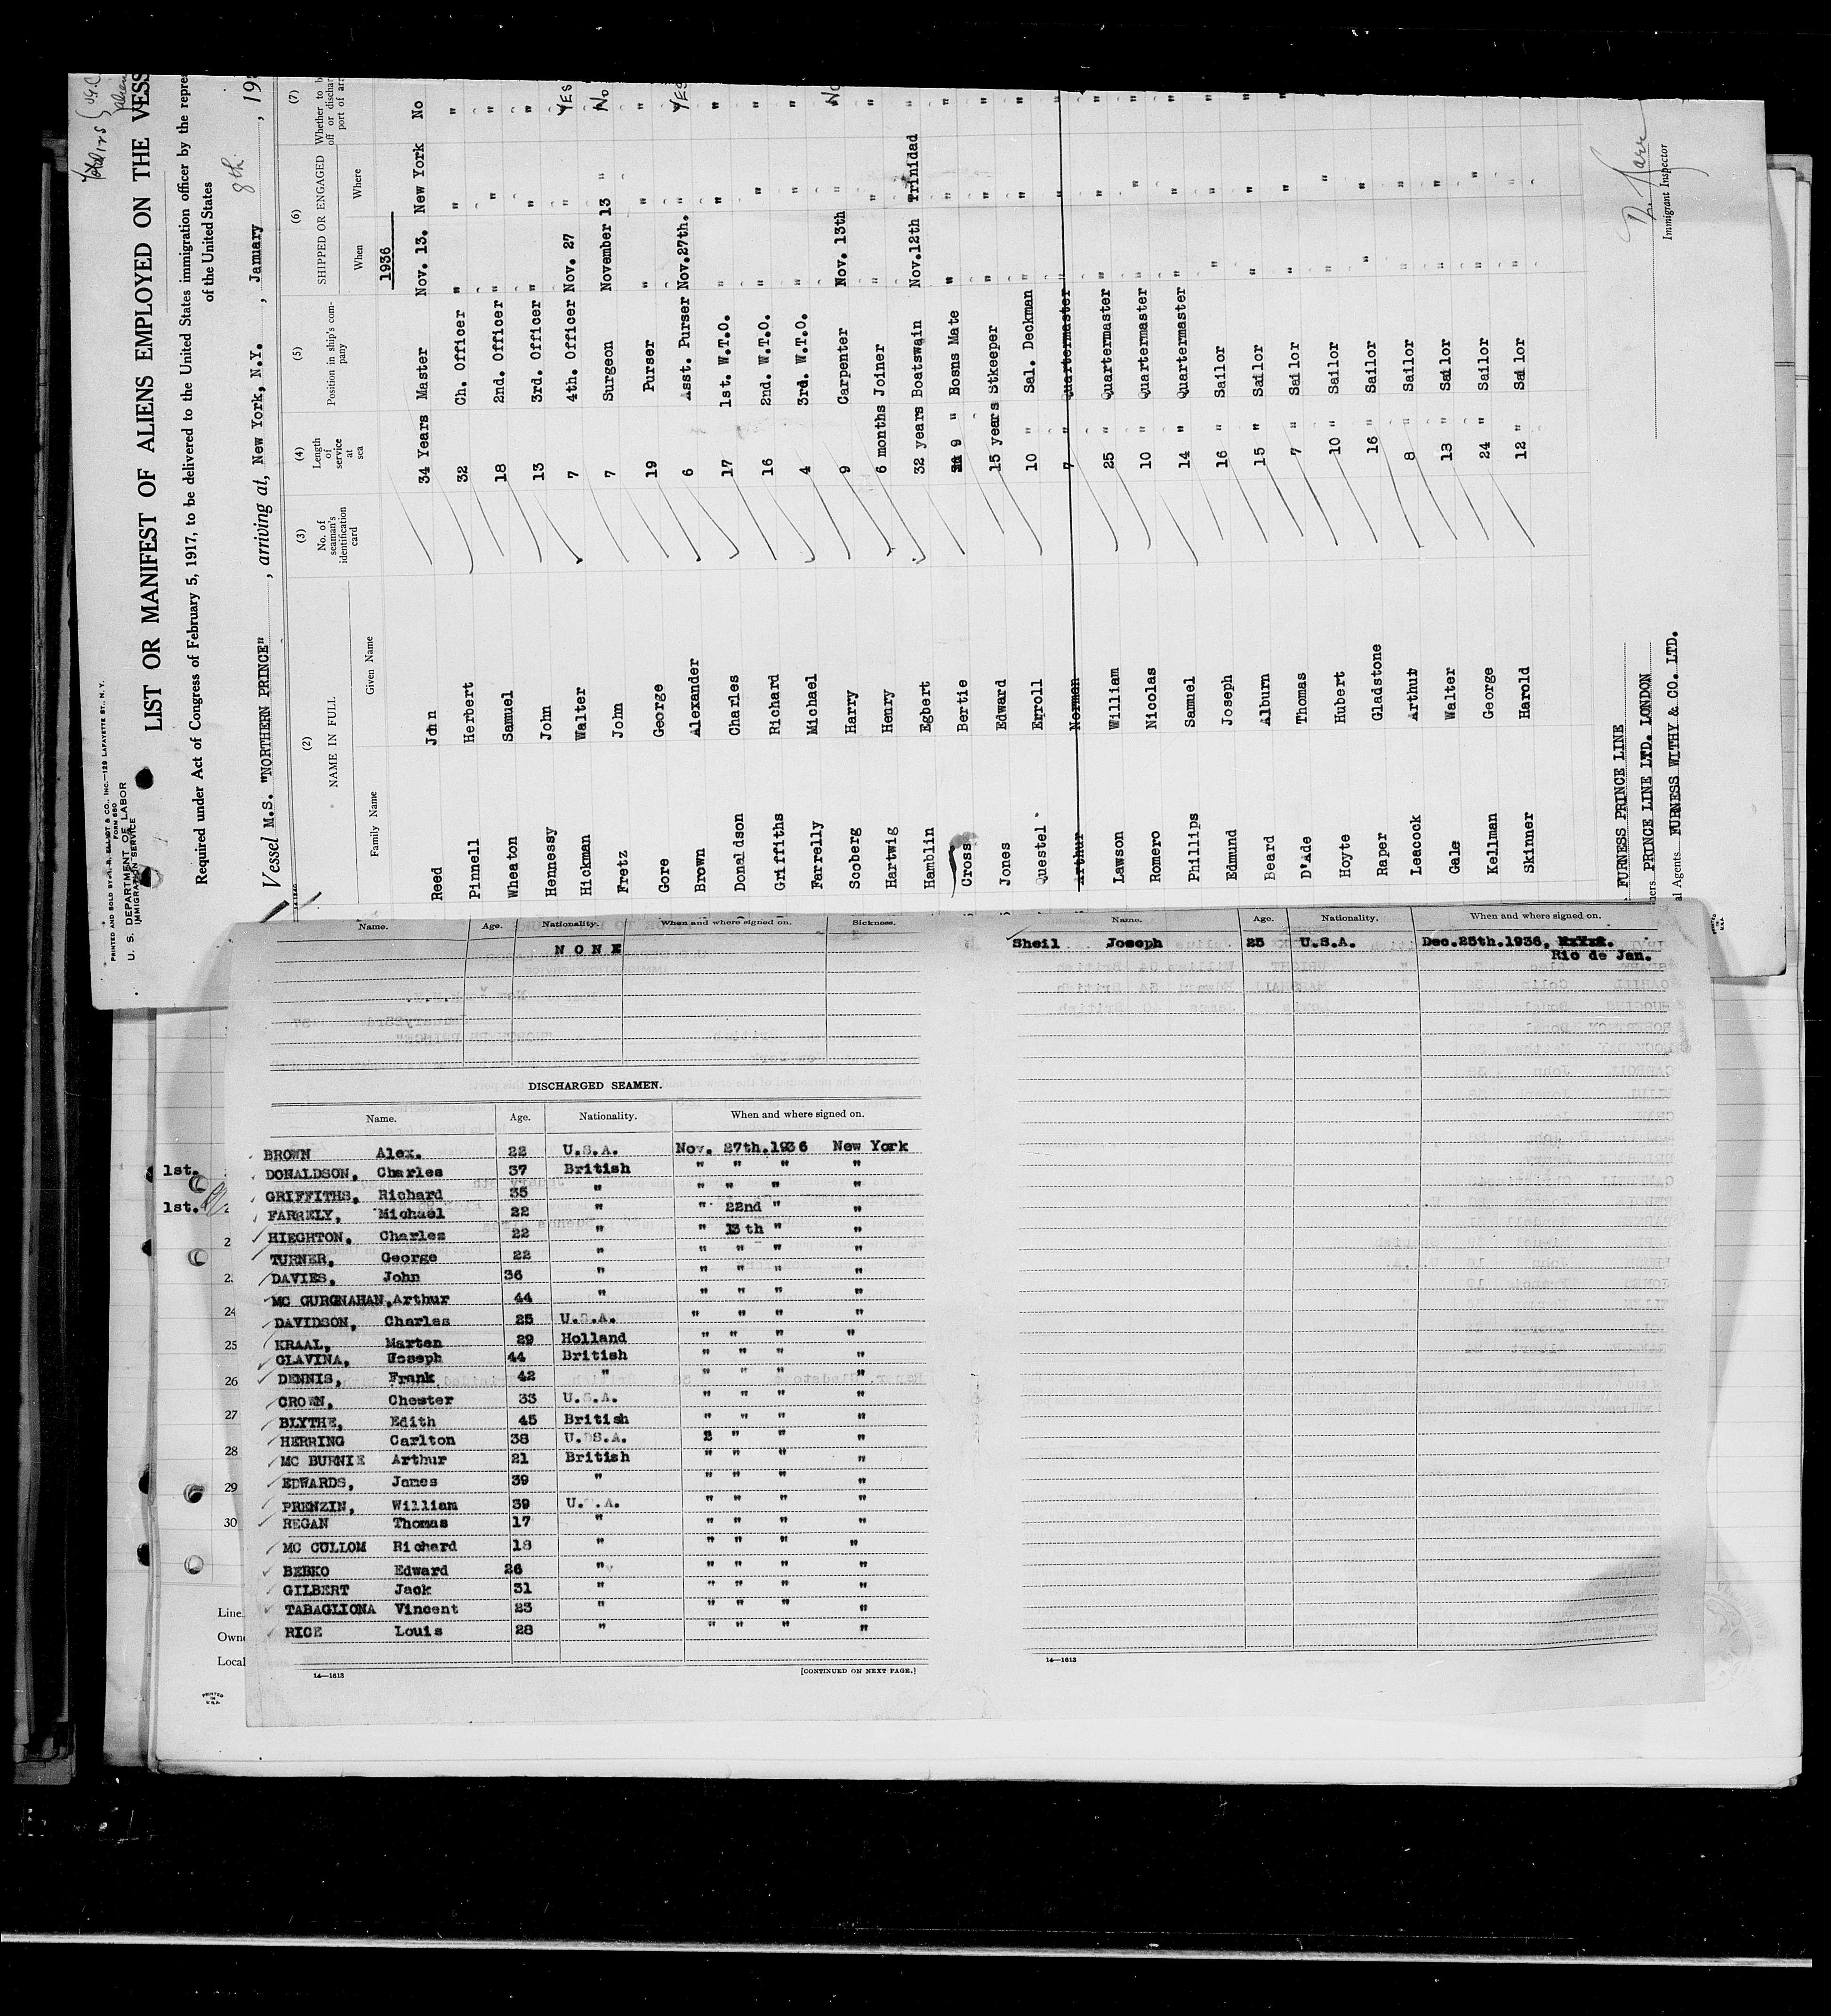 PRINTED AND SOLD BY A. R. ELLIOT & CO., INC.—129 LAFAYETTE ST., N. Y.
FORM 680
U. S. DEPARTMENT OF LABOR
IMMIGRATION SERVICE
LIST OR MANIFEST OF ALIENS EMPLOYED ON THE VESS
Required under Act of Congress of February 5, 1917, to be delivered to the United States immigration officer by the repre
of the United States
Vessel M.S. "NORTHERN PRINCE", arriving at, New York, N.Y., January 8th, 19
(2) (3) (4) (5) (6) (7)
NAME IN FULL No. of seaman's identification card Length of service at sea Position in ship's company SHIPPED OR ENGAGED Whether to b off or dischar port of arr
Family Name Given Name When Where
1936
Reed John 34 Years Master Nov. 13. New York No
Pinnell Herbert 32 Ch. Officer " " "
Wheaton Samuel 18 2nd. Officer " " "
Hennessy John 13 3rd. Officer " " "
Hickman Walter 7 4th. Officer Nov. 27 " YES
Fretz John 7 Surgeon November 13 " No
Gore George 19 Purser " " "
Brown Alexander 6 Asst. Purser Nov.27th. " YES
Donaldson Charles 17 1st. W.T.O. " " "
Griffiths Richard 16 2nd. W.T.O. " " "
Farrelly Michael 4 3rd. W.T.O. " " "
Scoberg Harry 9 Carpenter Nov. 13th " No
Hartwig Henry 6 months Joiner " " "
Hamblin Egbert 32 years Boatswain Nov.12th Trinidad "
Cross Bertie 9 " Bosns Mate " " "
Jones Edward 15 years Stkeeper " " "
Questel Erroll 10 " Sal. Deckman " " "
Arthur Norman 7 " Quartermaster " " "
Lawson William 25 " Quartermaster " " "
Romero Nicolas 10 " Quartermaster " " "
Phillips Samuel 14 " Quartermaster " " "
Edmund Joseph 16 " Sailor " " "
Beard Alburn 15 " Sailor " " "
D'Ade Thomas 7 " Sailor " " "
Hoyte Hubert 10 " Sailor " " "
Raper Gladstone 16 " Sailor " " "
Leacock Arthur 8 " Sailor " " "
Gale Walter 13 " Sailor " " "
Kellman George 24 " Sailor " " "
Skinner Harold 12 " Sailor " "
FURNESS PRINCE LINE
ners PRINCE LINE LTD. LONDON
l Agents FURNESS WITHY & CO. LTD.
Immigrant Inspector
Name. Age. Nationality. When and where signed on. Sickness.
NONE
DISCHARGED SEAMEN.
Name. Age. Nationality. When and where signed on.
BROWN Alex. 22 U.S.A. Nov. 27th.1936 New York
DONALDSON, Charles 37 British " " " "
GRIFFITHS, Richard 35 " " " " "
FARRELY, Michael 22 " " 22nd " "
HIEGHTON, Charles 22 " " 13th " "
TURNER, George 22 " " " " "
DAVIES, John 36 " " " " "
MC GURGNAHAN, Arthur 44 " " " " "
DAVIDSON, Charles 25 U.S.A. " " " "
KRAAL, Marten 29 Holland " " " "
GLAVINA, Joseph 44 British " " " "
DENNIS, Frank 42 " " " " "
CROWN, Chester 33 U.S.A. " " " "
BLYTHE, Edith 45 British " " " "
HERRING Carlton 38 U.S.A. " " "
MC BURNIE Arthur 21 British " " " "
EDWARDS, James 39 " " " " "
PRENZIN, William 39 U. .A. " " " "
REGAN Thomas 17 " " " " "
MC CULLOM Richard 18 " " " " "
BEBKO Edward 26 " " " " "
GILBERT Jack 31 " " " " "
TABAGLIONA Vincent 23 " " " " "
RICE Louis 28 " " " " "
14—1613 [CONTINUED ON NEXT PAGE.]
Name. Age. Nationality. When and where signed on.
Sheil Joseph 25 U.S.A. Dec.25th.1936,
Rio de Jan.
14—1613
1st.
1st.
2
2
2
24
25
26
27
28
29
30
Line
Own
Local
PRINTED
IN
U.S.A.